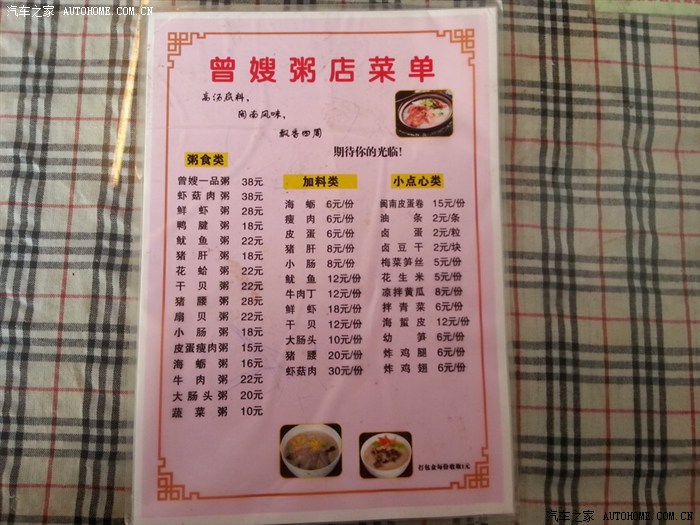 汽车之家 | AUTOHOME.COM.CN
曾嫂粥店菜单
高汤底料,
闽南风味,
飘香四周
期待你的光临!
粥食类
曾嫂一品粥 38元
虾菇肉粥 38元
鲜虾粥 28元
鸭腱粥 18元
鱿鱼粥 22元
猪肝粥 18元
花蛤粥 22元
干贝粥 22元
猪腰粥 28元
扇贝粥 22元
小肠粥 18元
皮蛋瘦肉粥 15元
海蛎粥 16元
牛肉粥 22元
大肠头粥 20元
蔬菜粥 10元
加料类
海蛎 6元/份
瘦肉 6元/份
皮蛋 6元/份
猪肝 8元/份
小肠 8元/份
鱿鱼 12元/份
牛肉丁 12元/份
鲜虾 18元/份
干贝 12元/份
大肠头 10元/份
猪腰 20元/份
虾菇肉 30元/份
小点心类
闽南皮蛋卷 15元/份
油条 2元/条
卤蛋 2元/粒
卤豆干 2元/块
梅菜笋丝 5元/份
花生米 5元/份
凉拌黄瓜 8元/份
拌青菜 6元/份
海蜇皮 12元/份
幼笋 6元/份
炸鸡腿 6元/份
炸鸡翅 6元/份
打包盒每份收取1元
汽车之家 | AUTOHOME.COM.CN